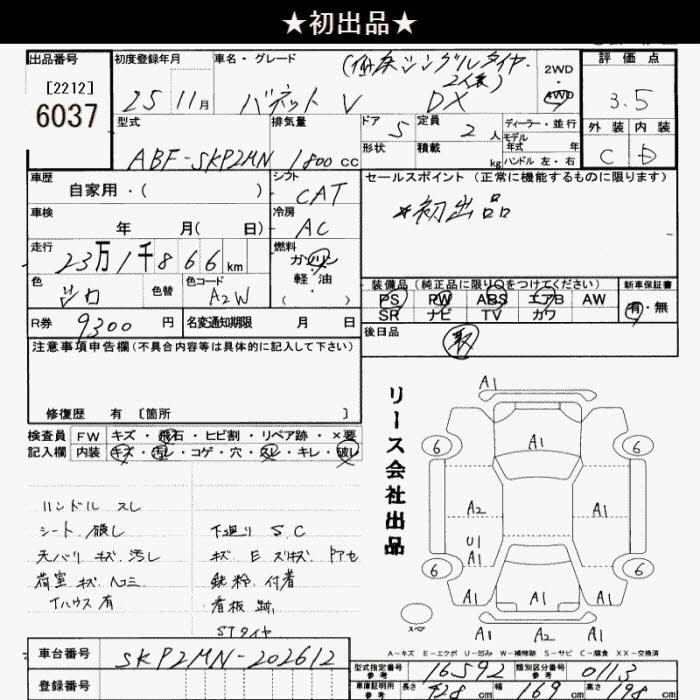 ★初出品★
出品番号
[2212]
6037
初度登録年月
25 11月
車名・グレード
(低床シングルタイヤ.
2人乗)
バネット V DX
2WD
4WD
評価点
3.5
外装 内装
C D
型式
ABF-SKP2MN
排気量
1800 cc
ドア
5
定員
2 人
形状
積載
kg
ディーラー・並行
モデル
年式 年
ハンドル 左・右
車歴
自家用・( )
シフト
CAT
セールスポイント (正常に機能するものに限ります)
*初出品
車検
年 月( 日)
冷房
AC
走行
23万1千866km
燃料
ガソリン
軽・油
( )
色
シロ
色替
色コード
A2W
装備品 (純正品に限り○をつけてください)
PS PW ABS エアB AW
SR ナビ TV カワ
新車保証書
有・無
R券
9300 円
名変通知期限 月 日
後日品
取
注意事項申告欄 (不具合内容等は具体的に記入して下さい)
修復歴 有 〔箇所 〕
検査員
記入欄
FW キズ・飛石・ヒビ割・リペア跡・×要
内装 キズ・汚レ・コゲ・穴・スレ・キレ・破レ
ハンドル スレ
シート 破レ
天バリ キズ.汚し
荷室 キズ.ヘコミ
イハウス有
下廻り S.C
キズ E ズリキズ Pアセ
鉄粉.付着
看板 跡
STタイヤ
リース会社出品
A1
6 A1 6
A2 A1
U1
A1
6 6
A1 A1 A1
A1 A2
スペア
A-キズ E-エクボ U-凹み W-補修跡 S-サビ C-腐食 XX-交換済
車台番号
SKP2MN-202612
登録番号
型式指定番号
参考
16592
類別区分番号
参考
0113
車庫証明用
参考
長さ 428 cm
幅 169 cm
高さ 198 cm